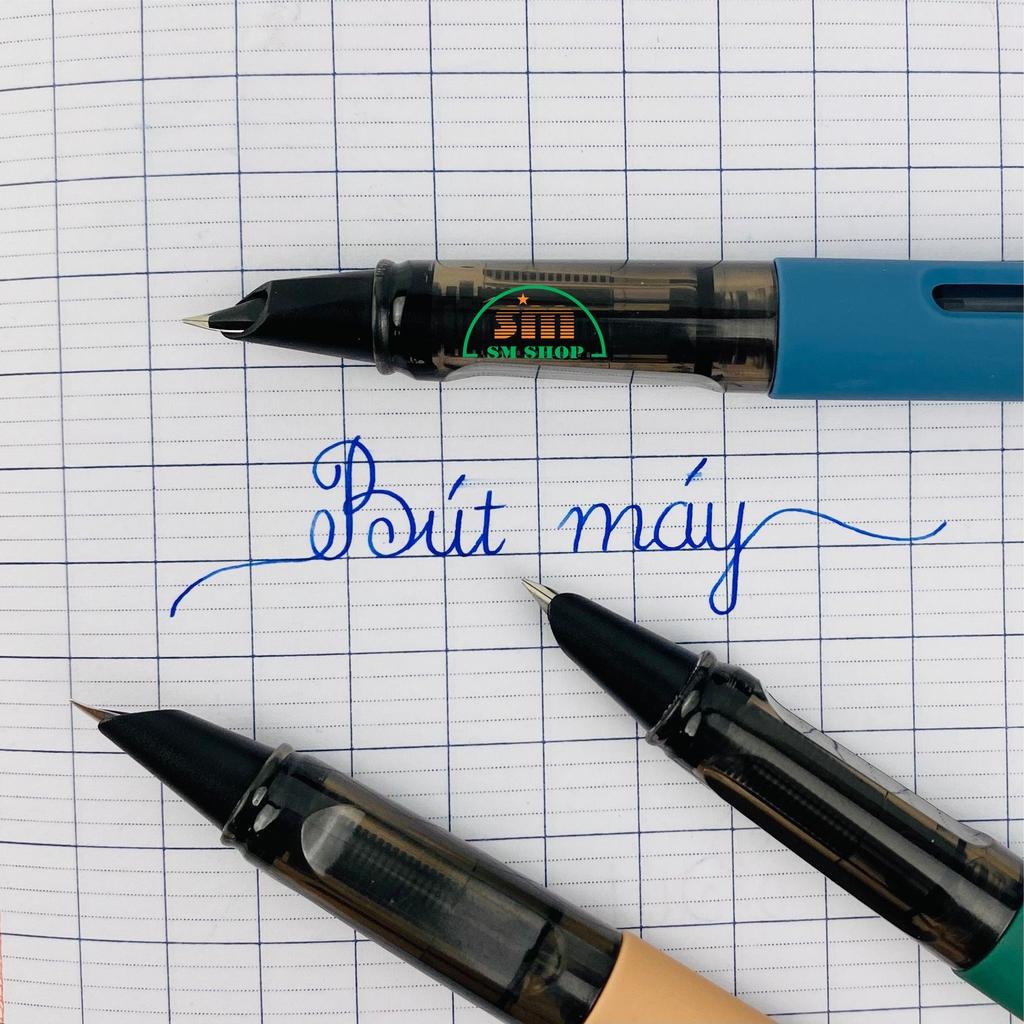 SM
SM SHOP
Bút máy